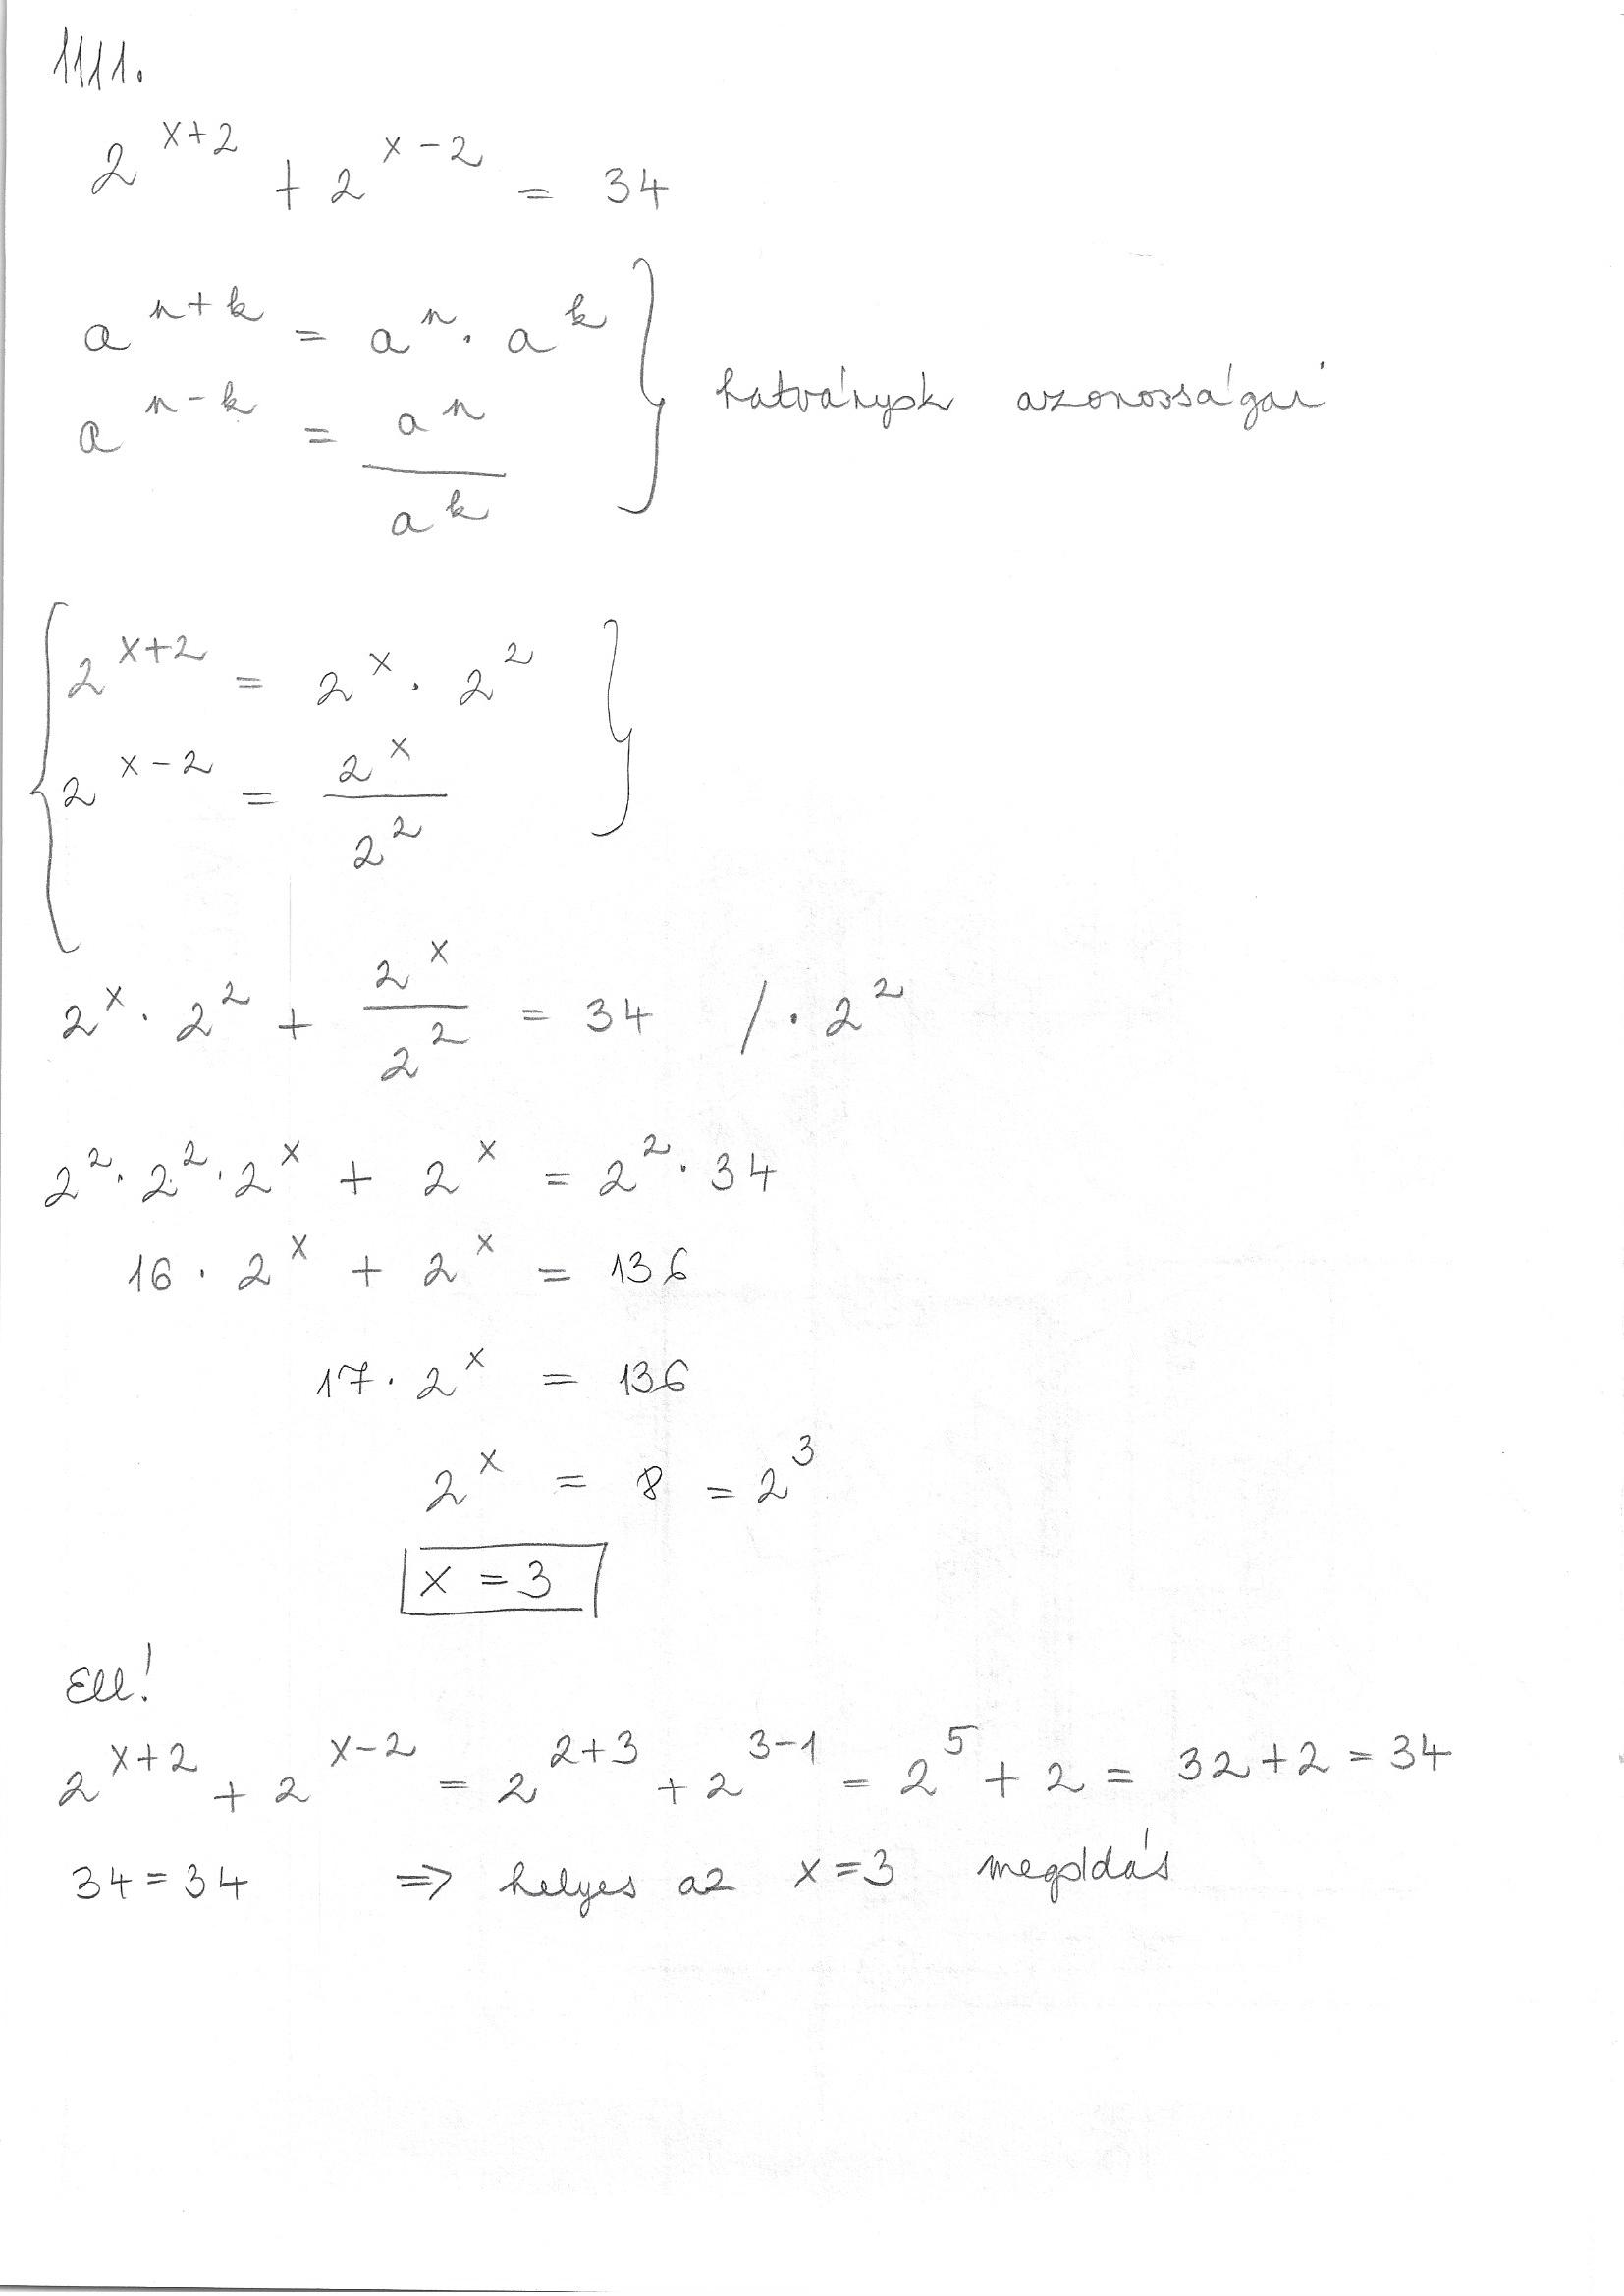 1111.
2^(x+2) + 2^(x-2) = 34
a^(n+k) = a^n · a^k
a^(n-k) = a^n / a^k } hatványok azonosságai
{ 2^(x+2) = 2^x · 2^2
2^(x-2) = 2^x / 2^2 }
2^x · 2^2 + 2^x / 2^2 = 34 / · 2^2
2^2 · 2^2 · 2^x + 2^x = 2^2 · 34
16 · 2^x + 2^x = 136
17 · 2^x = 136
2^x = 8 = 2^3
x = 3
Ell!
2^(x+2) + 2^(x-2) = 2^(2+3) + 2^(3-1) = 2^5 + 2 = 32 + 2 = 34
34 = 34 ⇒ helyes az x = 3 megoldás